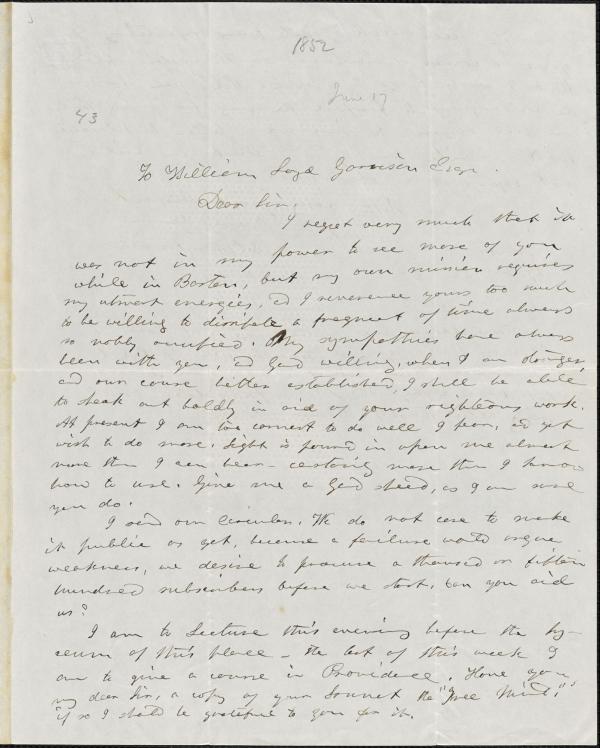 1852
June 17
43
To William Loyd Garrison Esqr.
Dear Sir,
I regret very much that it
was not in my power to see more of you
while in Boston, but my own mission requires
my utmost energies, and I reverence yours too much
to be willing to dissipate a fragment of time always
so nobly occupied. My sympathies have always
been with you, and God willing, when I am stronger,
and our cause better established, I shall be able
to speak out boldly in aid of your righteous work.
At present I am too earnest to do well I fear, and yet
wish to do more. Light is poured in upon me almost
more than I can bear – certainly more than I know
how to use. Give me a God speed, as I am sure
you do.
I send our Circular. We do not care to make
it public as yet, because a failure would argue
weakness, we desire to procure a thousand or fifteen
hundred subscribers before we start, can you aid
us?
I am to Lecture this evening before the Ly-
ceum of this place – the last of this week I
am to give a course in Providence. Have you
my dear Sir, a copy of your Sonnet the "Free Mind,"
if so I should be grateful to you for it.